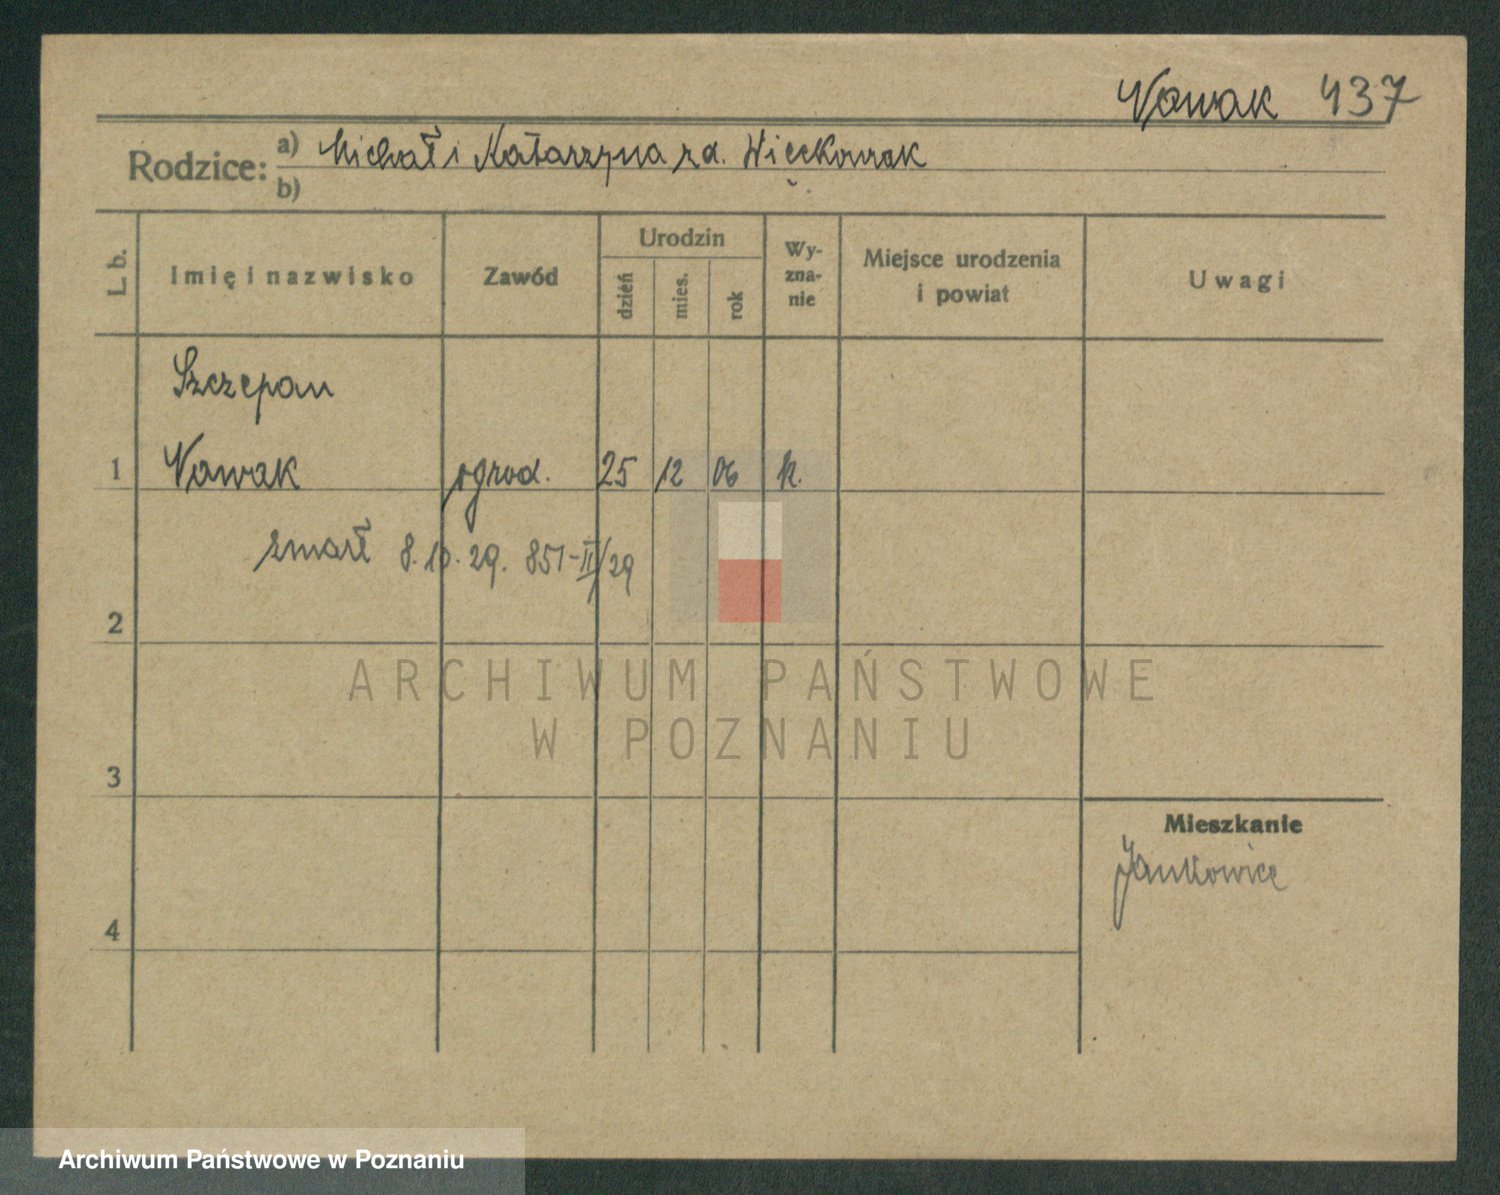 Nowak 437
Rodzice: a) Michał i Katarzyna z d. Więckowiak
b)
L. b. Imię i nazwisko Zawód Urodzin dzień mies. rok Wy-zna-nie Miejsce urodzenia i powiat Uwagi
Szczepan
1 Nowak ogrod. 25 12 06 k.
zmarł 8.10.29. 851-II/29
2
ARCHIWUM PAŃSTWOWE
W POZNANIU
3
Mieszkanie
Jankowice
4
Archiwum Państwowe w Poznaniu